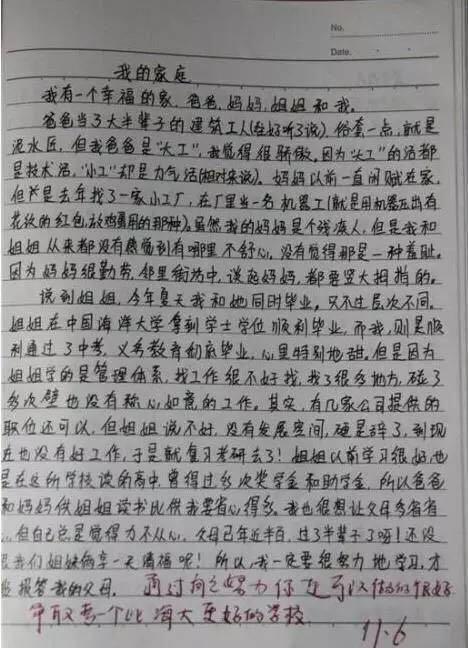 No.
Date.
我的家庭
我有一个幸福的家,爸爸,妈妈,姐姐和我。
爸爸当了大半辈子的建筑工人(在好听了说),俗套一点,就是
泥水匠,但我爸爸是“大工”,我觉得很骄傲。因为“大工”的活都
是技术活,“小工”却是力气活(相对来说)。妈妈以前一直闲赋在家,
但是去年找了一家小工厂,在厂里当一名机器工(就是用机器压出有
花纹的红包,放鸡蛋用的那种)。虽然我的妈妈是个残疾人,但是我和
姐姐从来都没有感觉到有哪里不舒心,没有觉得那是一种羞耻。
因为妈妈很勤劳,邻里街坊中,谈起妈妈,都要竖大拇指的。
说到姐姐,今年夏天我和她同时毕业。只不过层次不同。
姐姐在中国海洋大学拿到学士学位顺利毕业,而我,则是顺
利通过了中考,义务教育彻底毕业,心里特别地甜。但是因为
姐姐学的是管理体系,找工作很不好找,找了很多地方,碰了
多次壁也没有称心如意的工作。其实,有几家公司提供的
职位还可以,但姐姐说不好,没有发展空间,硬是辞了,到现
在也没有好工作,于是就复习考研去了!姐姐以前学习很好,也
是在这所学校读的高中,曾得过多次奖学金和助学金,所以爸爸
和妈妈供姐姐读书比供我要省心得多。我也很想让父母多省省
心,但自己总是觉得力不从心。父母已年近半百,过了半辈子了呀!还没
我们姐妹俩享一天清福呢!所以,我一定要很努力地学习,才
能报答我的父母。通过自己努力你也可以做的很好
争取考一个比海大更好的学校
11.6